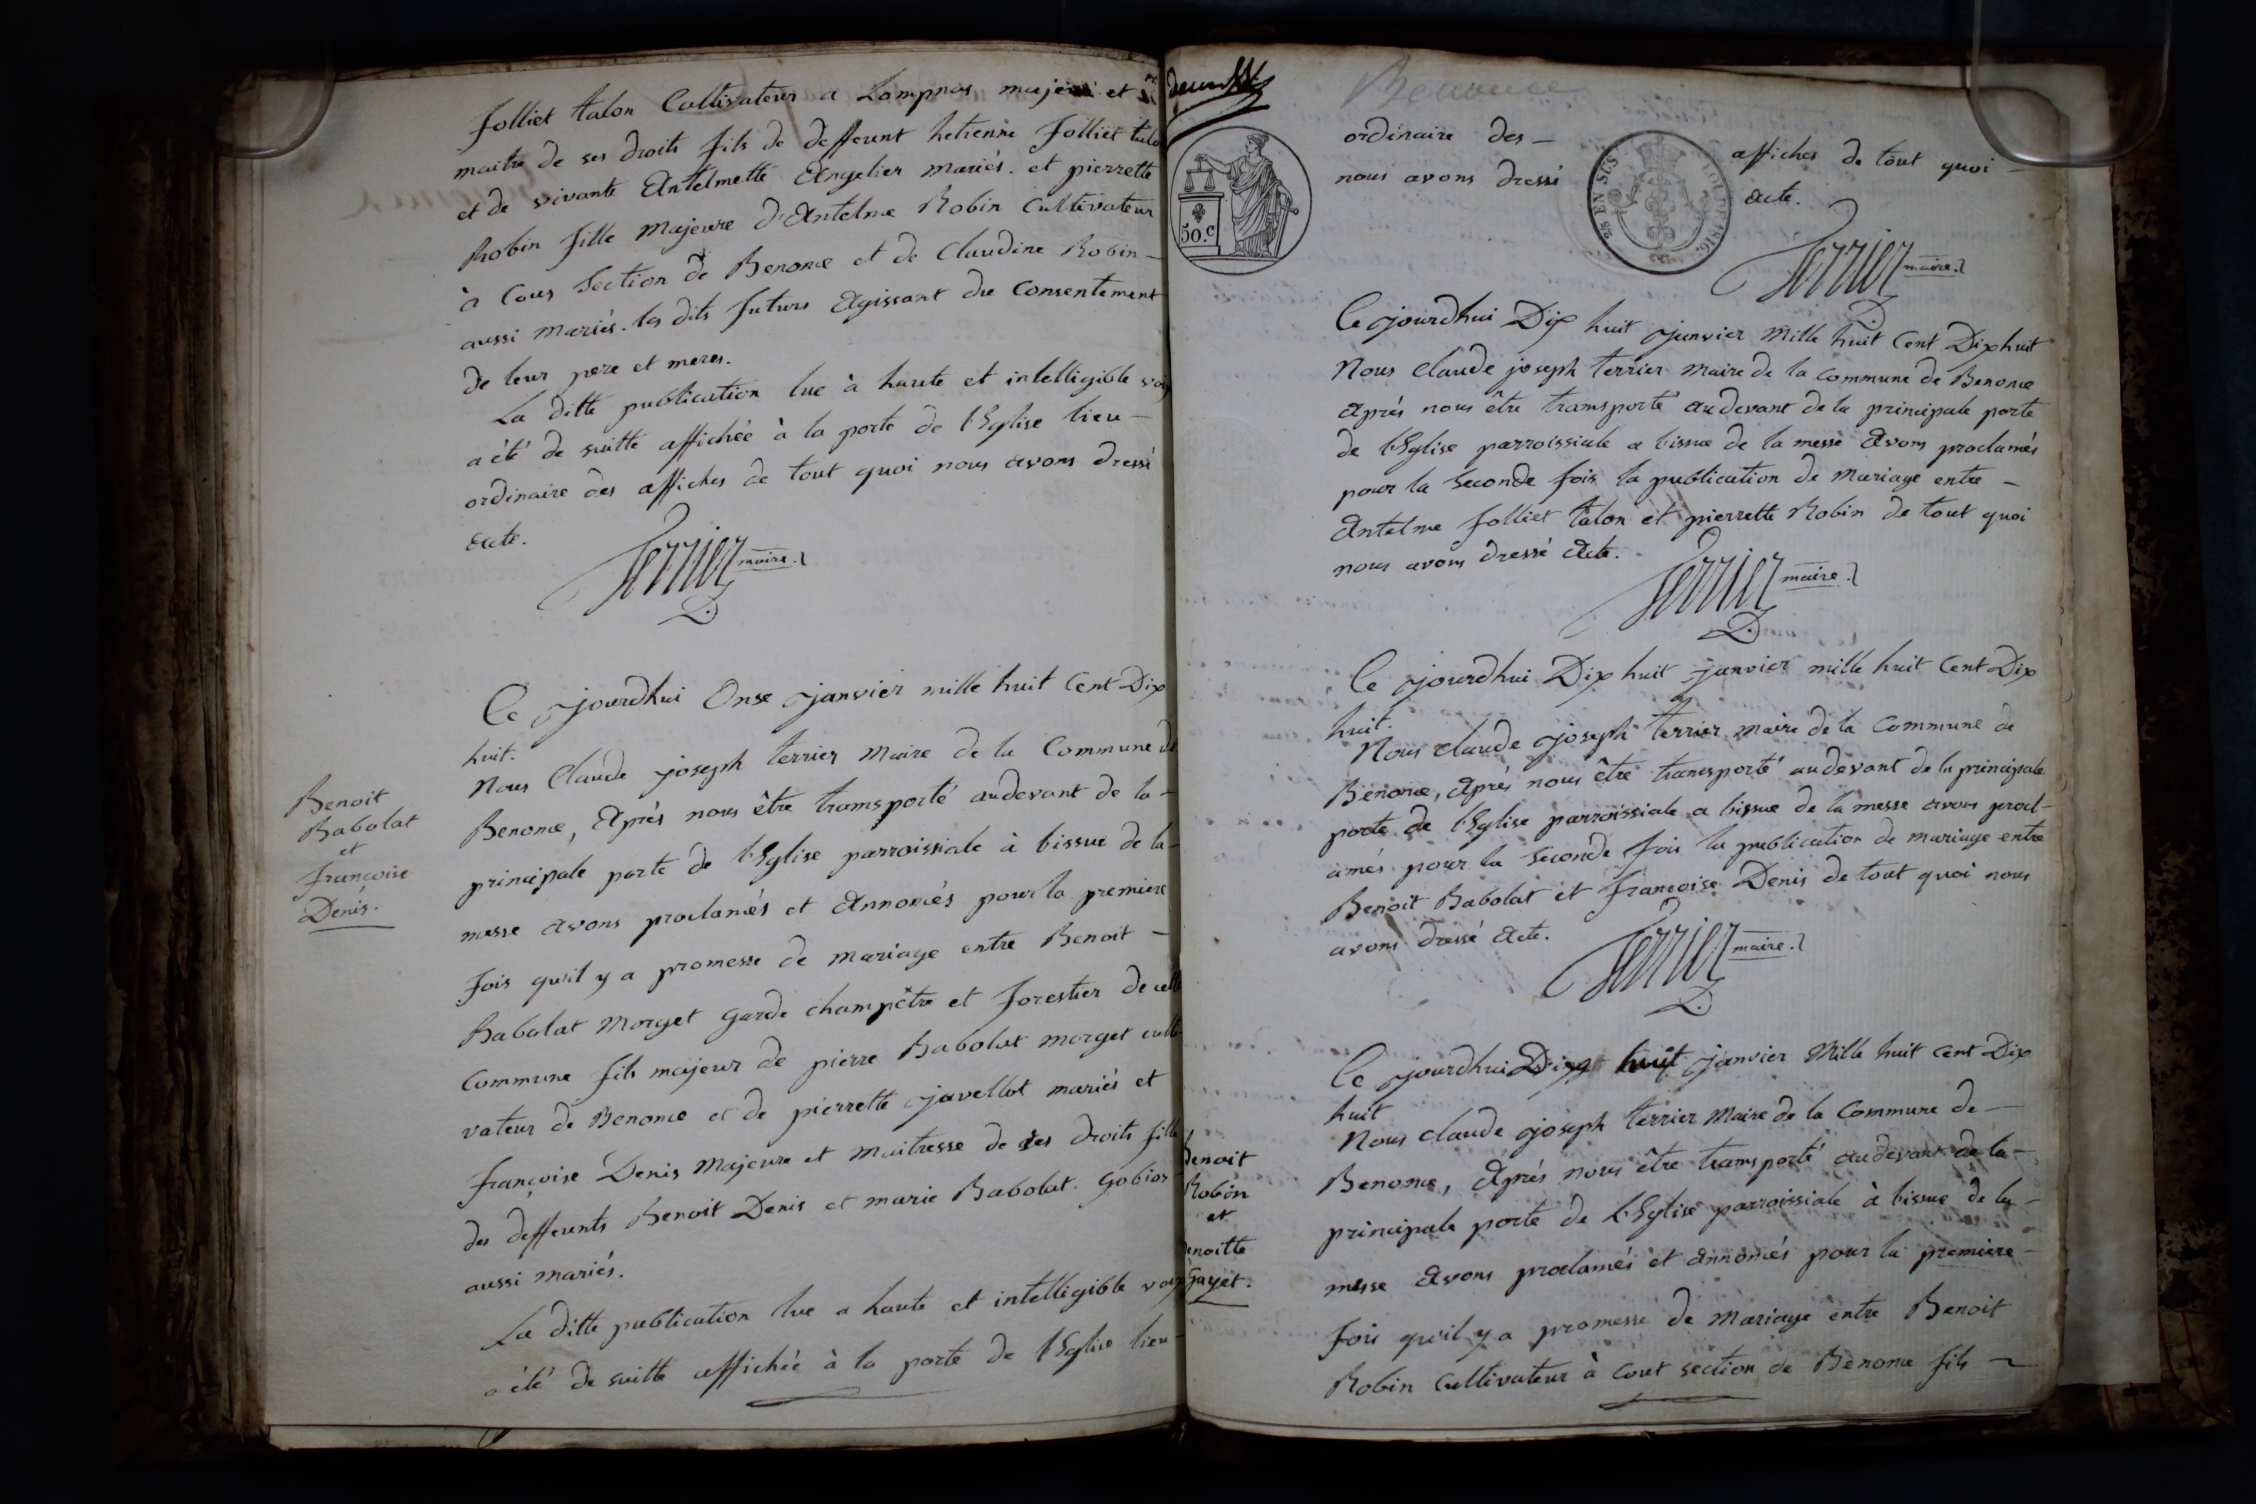 Jolliet talon Cultivateur a Lompnas majeur et
maitre de ses droits fils de defferent hetienne Jolliet talo
et de vivante Antelmette Angelier mariés. et pierrette
Robin fille majeure d'Antelme Robin Cultivateur
à Cous Section de Benonce et de Claudine Robin
aussi mariés. les dits futurs Agissant du Consentement
de leur pere et meres.
La ditte publication lue à haute et intelligible voix
a été de suitte affichée à la porte de l'Eglise lieu
ordinaire des affiches de tout quoi nous avons dressé
acte.
Terrier maire.
Ce jourdhui Onse janvier mille huit Cent Dix
huit.
Benoit
Babolat
et
françoise
Denis.
Nous Claude joseph terrier Maire de la Commune de
Benonce, Après nous être transporté audevant de la
principale porte de l'Eglise parroissiale à l'issue de la
messe avons proclamés et Annoncés pour la premiere
fois qu'il y a promesse de mariage entre Benoit
Babolat Morget Garde champêtre et forestier de cette
Commune fils majeur de pierre Babolat morget culti
vateur de Benonce et de pierrette javellot mariés et
françoise Denis Majeure et maitresse de ses droits fille
des defferents Benoit Denis et marie Babolat. Gobior
aussi mariés.
La ditte publication lue a haute et intelligible voix
a été de suitte affichée à la porte de l'Eglise lieu
Benonce
50.c
ordinaire des affiches de tout quoi
nous avons dressé acte.
Terrier maire.
Ce jourdhui Dix huit janvier Mille huit Cent Dix huit
Nous Claude joseph terrier Maire de la Commune de Benonce
Après nous être transporté audevant de la principale porte
de l'Eglise parroissiale a l'issue de la messe Avons proclamés
pour la Seconde fois la publication de Mariage entre
Antelme Jolliet talon et pierrette Robin de tout quoi
nous avons dressé Acte.
Terrier maire.
Ce jourdhui Dix huit janvier mille huit Cent Dix
huit.
Nous Claude joseph terrier maire de la Commune de
Benonce, Après nous être transporté audevant de la principale
porte de l'Eglise parroissiale a l'issue de la messe avons procl-
amés pour la Seconde fois la publication de mariage entre
Benoit Babolat et françoise Denis de tout quoi nous
avons dressé Acte.
Terrier maire.
Ce jourdhui Dix huit janvier Mille huit Cent Dix
huit
Benoit
Robin
et
enoitte
Gayet.
Nous Claude joseph terrier Maire de la Commune de
Benonce, Après nous être transporté audevant de la
principale porte de l'Eglise parroissiale à l'issue de la
messe Avons proclamés et annoncés pour la premiere
fois qu'il y a promesse de Mariage entre Benoit
Robin Cultivateur à Cout section de Benonce fils